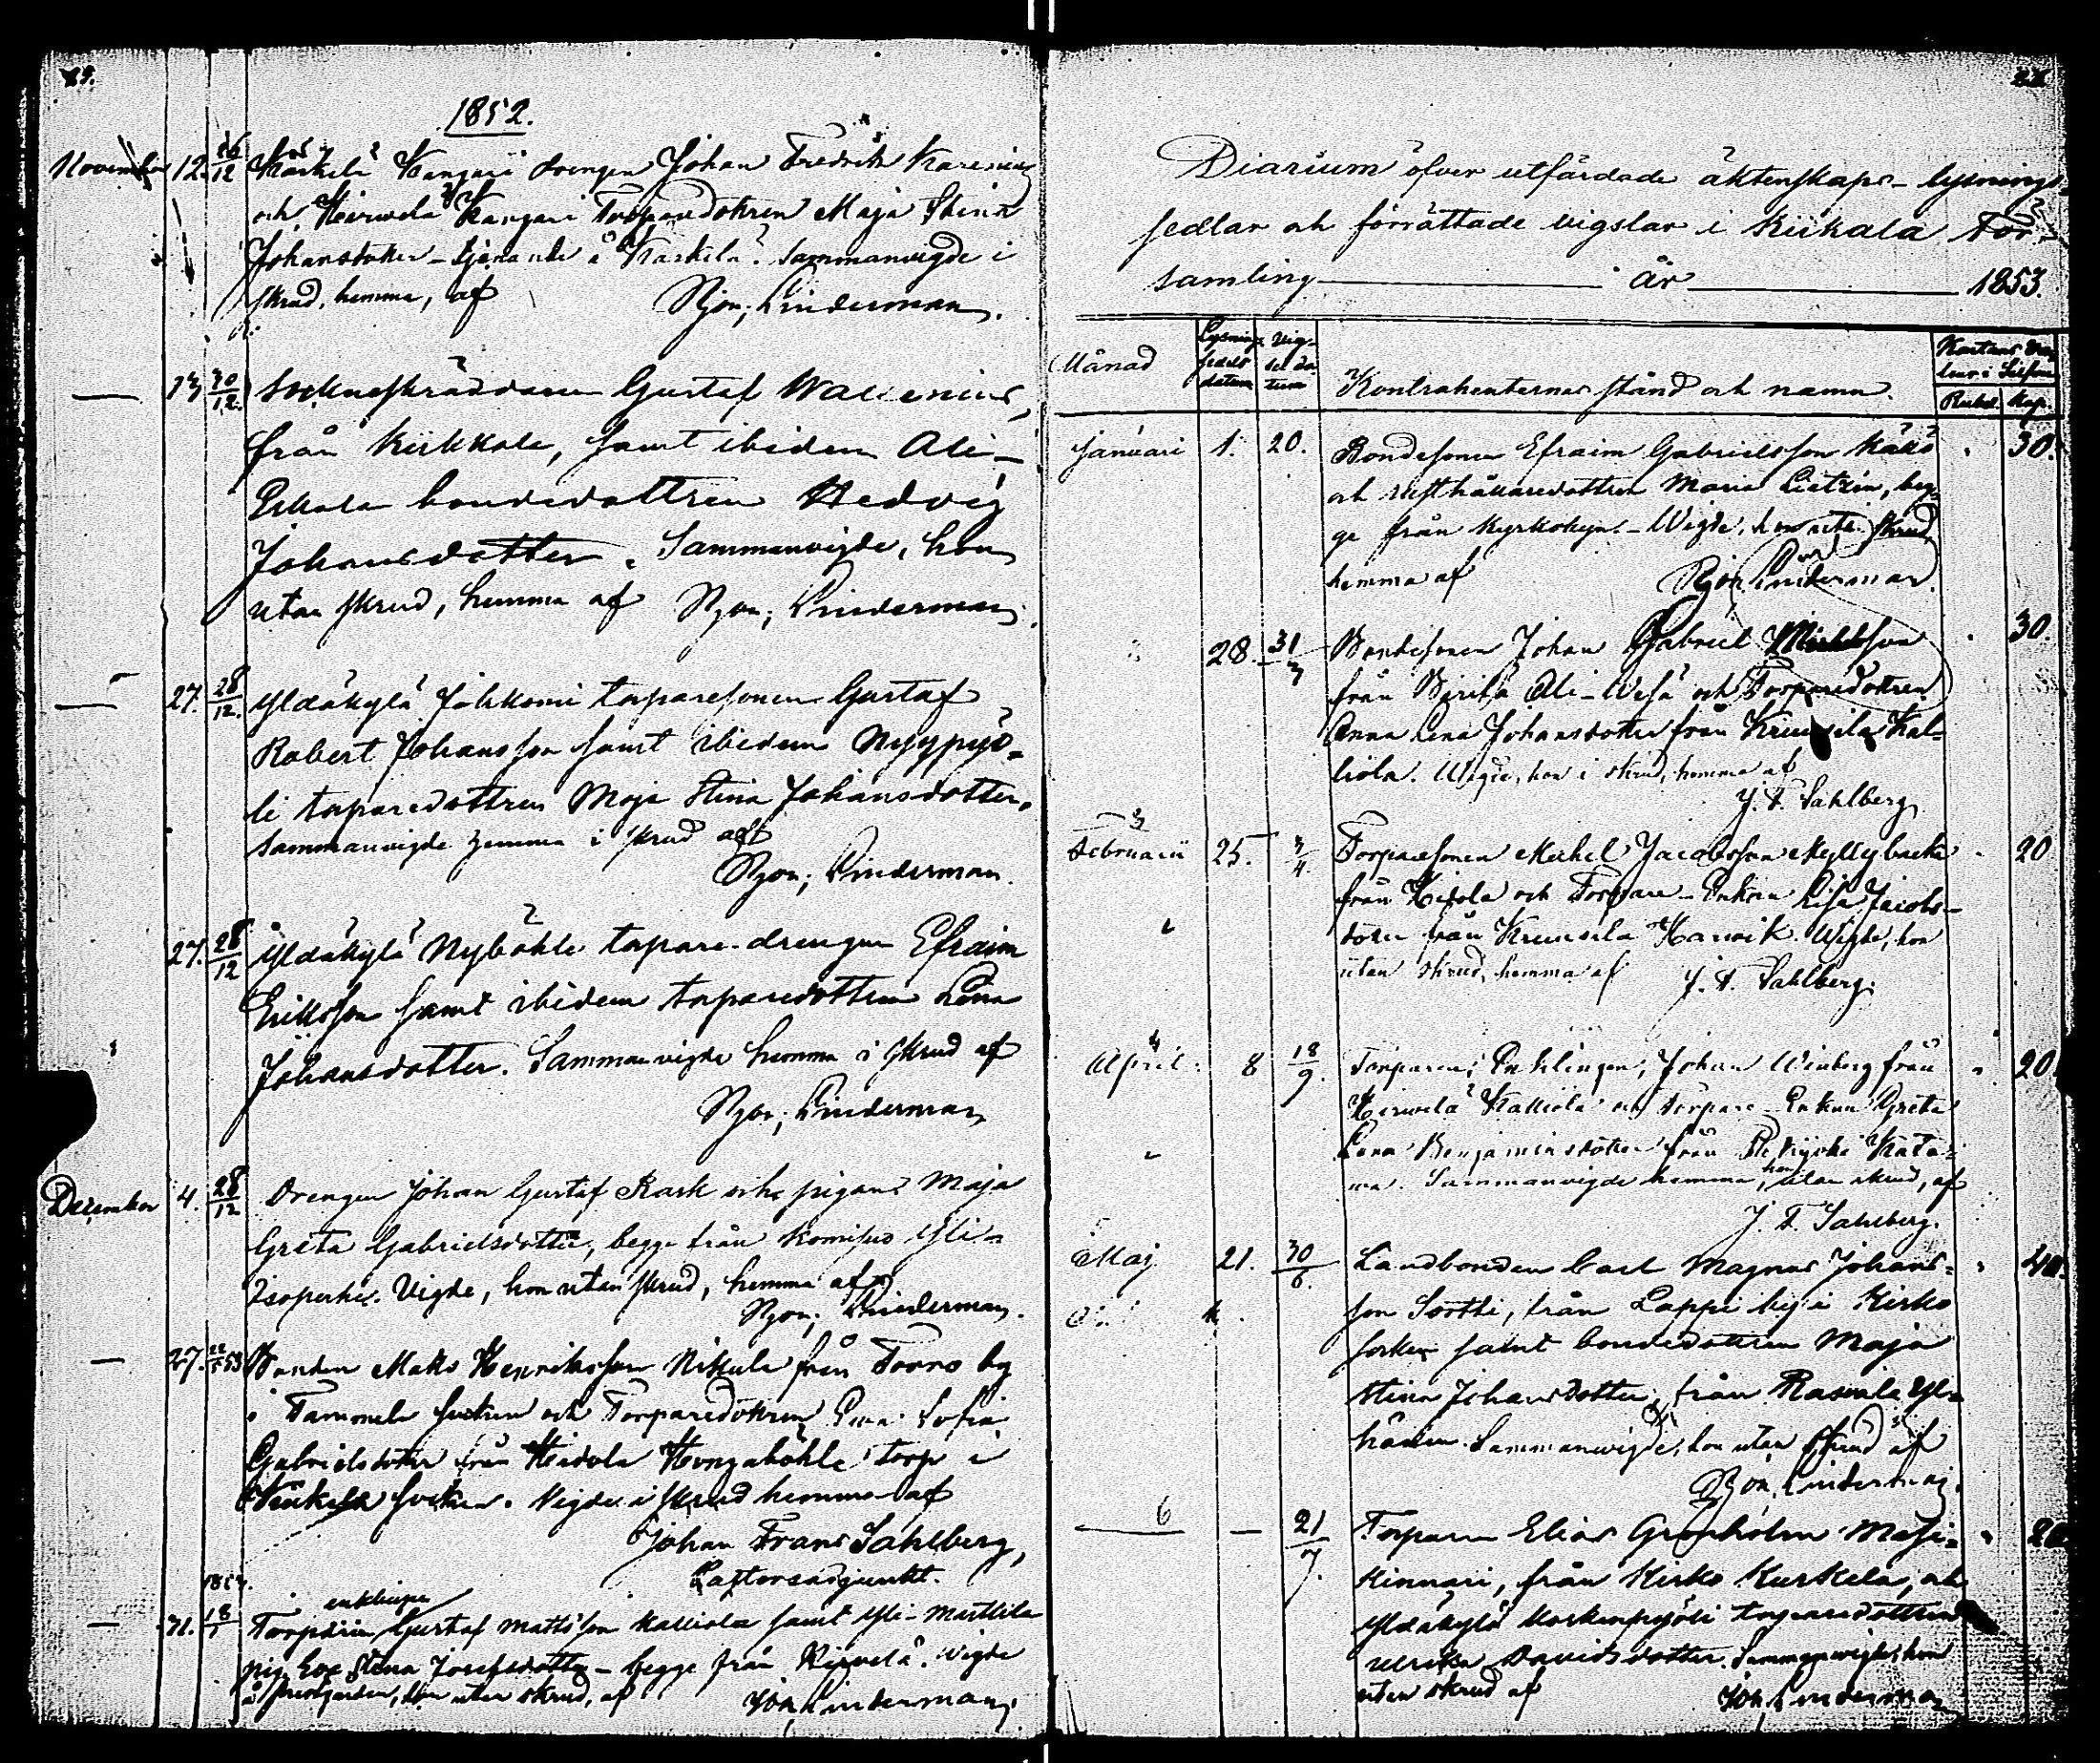 1852.
November 12. 26/12 Kärkelä Kangari drengen Johan Fredrik Karenius
och Hirvelä Kangari Torparedottren Maja Stina
Johansdotter - tjenande å Kärkelä. Sammanvigde i
skrud, hemma, af Bjon; Linderman.
— 13 30/12. Socknes­kräddaren Gustaf Wallenius,
från Kiikkala, samt ibidem Ali-
Eskola bondedottren Hedvig
Johansdotter. Sammanvigde, hon
utan skrud, hemma af Bjon; Linderman.
— 27. 28/12. Yldäkylä torparesonen Gustaf
Robert Johansson samt ibidem
torparedottren Maja Stina Johansdotter.
Sammanvigde hemma i skrud af
Bjon; Linderman.
27. 28/12 Yldäkylä Nyböhle torpare-drengen Efraim
Eriksson samt ibidem torparedottren Lena
Johansdotter. Sammanvigde hemma i skrud af
Bjon; Linderman
December 4. 28/12 Drengen Johan Gustaf Rask och pigan Maja
Greta Gabrielsdotter, begge från Komisuo Yli-
Isoperhe. Vigde, hon utan skrud, hemma af
Bjon; Linderman.
— 27. 53 Bonden Mats Henriksson Nikula från Torro by
i Tammela socken och Torparedottren Eva Sofia
Gabrielsdotter från Hidola Hongaböhle torp i
Kiikala socken. Vigde i skrud hemma af
Johan Frans Sahlberg,
Pastorsadjunkt.
1853.
enklinge
— 31. 18/1 Torparen Gustaf Mattsson Kalliola samt Yli-Marttila
pig. Eva Stina Josefsdotter - begge från Hirvelä. Vigde
å prestgården, hon utan skrud, af Jon Linderman;
Diarium öfver utfärdade äktenskaps-lysnings-
sedlar och förrättade vigslar i Kiikala För-
samling år 1853.
Månad Lysnings sedels datum Vig- sel da- tum Kontrahenternas stånd och namn. Rubel. Kop.
Januari 1. 20. Bondesonen Efraim Gabrielsson Käkö 30.
och rusthållaredottren Maria Lietzén, beg-
ge från Kyrkobyn. - Vigde, hon utan skrud,
hemma af Bjon Linderman.
28. 31/3 Bondesonen Johan Gabriel Michelsson 30.
från Ali-Vesä och Torparedottren
Anna Lena Johansdotter från Kruusila Kal-
liola. Vigde, hon i skrud, hemma af
J. F. Sahlberg
Februarii 25. 3/4. Torparesonen Michel Jacobsson Myllybacka 20
från Hidola och Torpare-Enkan Lisa Jacobs-
dotter från Kruusila. Vigde, hon
utan skrud, hemma af J. F. Sahlberg.
April. 8 18/9. Torparen, Enklingen, Johan Winberg från 20
Hirvelä Kalliola och Torpare-Enkan Greta
Lena Benjaminsdotter från
Sammanvigde hemma, hon utan skrud, af
J. F. Sahlberg.
Maj 21. 30/6. Landbonden Carl Magnus Johans- 40.
son Sortti, från Lappi by i Kisko
socken samt bondedottren Maja
Stina Johansdotter, från Rasvala Yl-
hänen. Sammanvigde, hon utan skrud af
Bjon, Linderman.
6 — 21/7. Torparen Elias Grönholm Mesi- 20
kinnari, från Kisko Kurkela, och
Yldäkylä torparedottren
Ulrika Davidsdotter. Sammanvigde, hon
utan skrud af Jon, Linderman